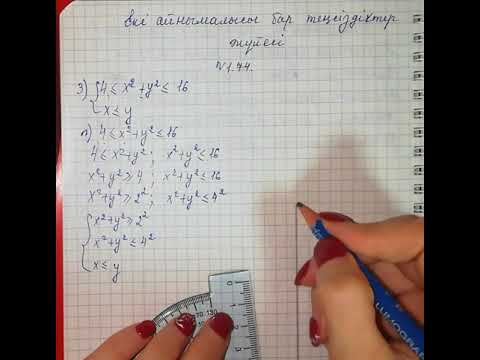 Екі айнымалысы бар теңсіздіктер
жүйесі
№1.74.
3) { 4 ≤ x² + y² ≤ 16
x ≤ y
n) 4 ≤ x² + y² ≤ 16
4 ≤ x² + y² ; x² + y² ≤ 16
x² + y² ≥ 4 ; x² + y² ≤ 16
x² + y² ≥ 2² ; x² + y² ≤ 4²
{ x² + y² ≥ 2²
x² + y² ≤ 4²
x ≤ y